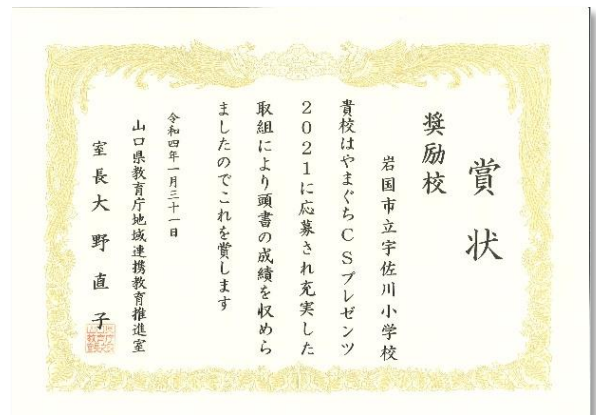 賞状
奨励校
岩国市立宇佐川小学校
貴校はやまぐちCSプレゼンツ
2021に応募され充実した
取組により頭書の成績を収めら
ましたのでこれを賞します
令和四年一月三十一日
山口県教育庁地域連携教育推進室
室長大野直子